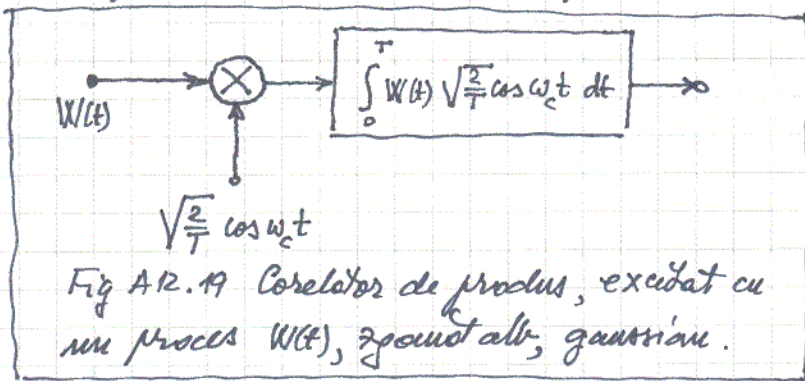 W(t)
∫₀ᵀ W(t) √(2/T) cos ω_c t dt
√(2/T) cos ω_c t
Fig A12.19 Corelator de produs, excitat cu
un proces W(t), zgomot alb, gaussian.